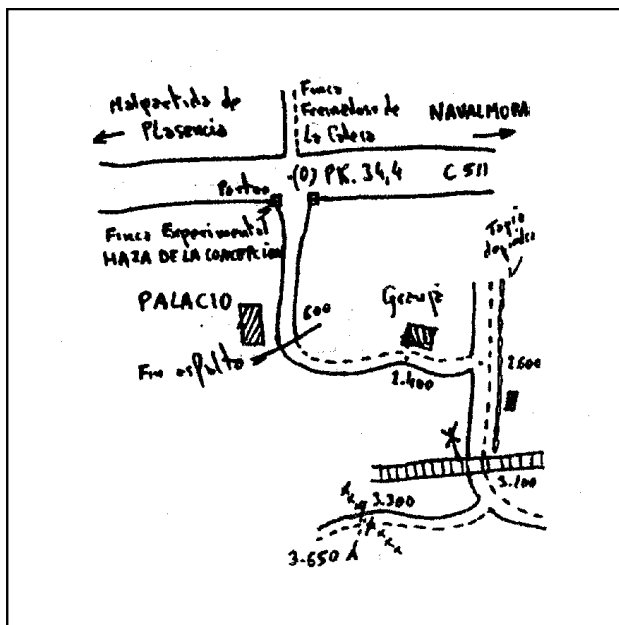 Malpartida de
Plasencia
Finca
Fresnedoso de
La Calera
NAVALMORAL
(0) PK. 34,4
C 511
Portón
Finca Experimental
HAZA DE LA CONCEPCION
Tapia
de piedra
PALACIO
600
Granja
Fin asfalto
2.400
2.600
3.100
3.300
3.650 A